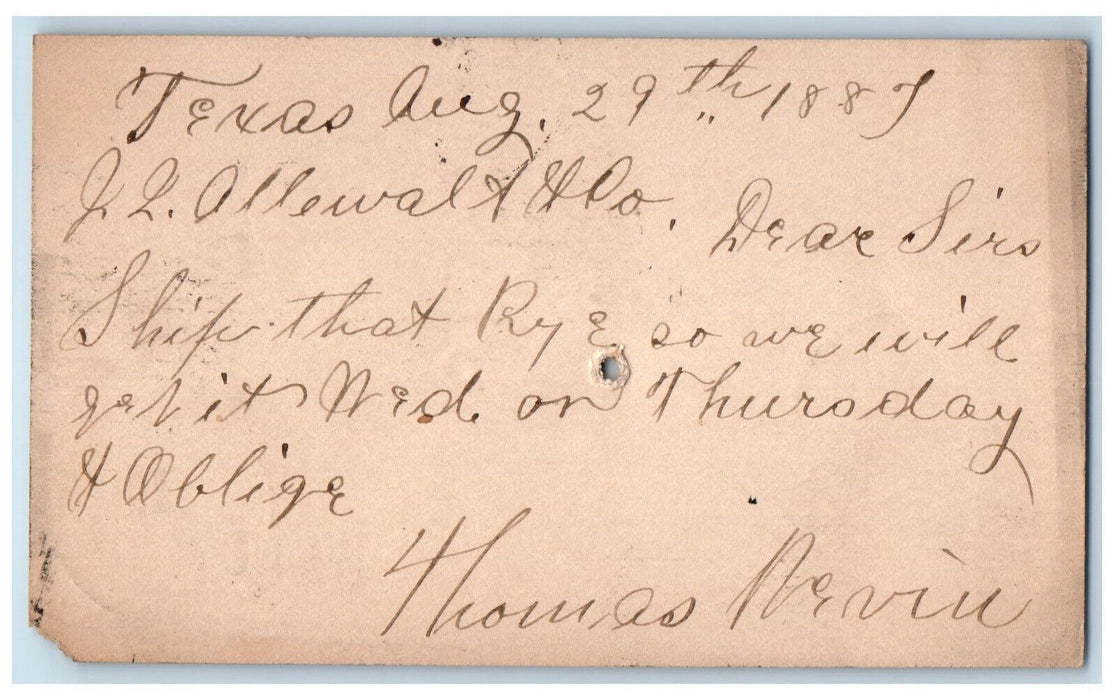 Texas Aug. 29th 1887
J. L. Allewalt & Co. Dear Sirs
Ship that Rye so we will
get it Wed. or Thursday
& Oblige
Thomas Nevin